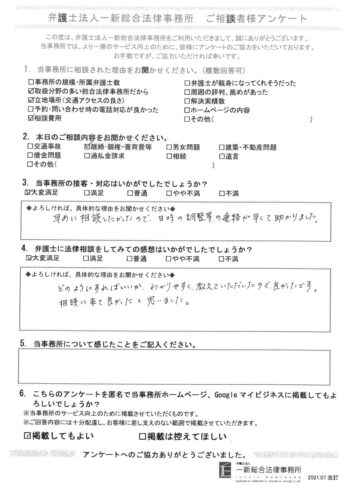 弁護士法人一新総合法律事務所　ご相談者様アンケート
この度は、弁護士法人一新総合法律事務所をご利用いただきまして、誠にありがとうございます。
当事務所では、より一層のサービス向上のために、皆様にアンケートのご協力をいただいております。
お手数ですが、ご協力いただければ幸いです。
1. 当事務所に相談された理由をお聞かせください。（複数回答可）
□事務所の規模・所属弁護士数　□弁護士が親身になってくれそうだった
☑取扱分野の多い総合法律事務所だから　□周囲の評判、薦めがあった
☑立地場所（交通アクセスの良さ）　□解決実績数
□予約・問い合わせ時の電話対応が良かった　□ホームページの内容
☑相談費用　□その他（　）
2. 本日のご相談内容をお聞かせください。
□交通事故　☑離婚・親権・養育費等　□男女問題　□建築・不動産問題
□借金問題　□過払金請求　□相続　□遺言
□その他（　）
3. 当事務所の接客・対応はいかがでしたでしょうか？
☑大変満足　□満足　□普通　□やや不満　□不満
◆よろしければ、具体的な理由をお聞かせください◆
早めに相談したかったので、日時の調整等の連絡が早くて助かりました。
4. 弁護士に法律相談をしてみての感想はいかがでしたでしょうか？
☑大変満足　□満足　□普通　□やや不満　□不満
◆よろしければ、具体的な理由をお聞かせください◆
どのようにすればいいか、わかりやすく、教えていただいたので良かったです。
相談に来て良かったと思いました。
5. 当事務所について感じたことをご記入ください。
6. こちらのアンケートを匿名で当事務所ホームページ、Googleマイビジネスに掲載してもよ
ろしいでしょうか？
※当事務所のサービス向上のために掲載させていただくものです。
※ご回答内容には十分配慮し、お客様に差し支えのない範囲で掲載させていただきます。
☑掲載してもよい　□掲載は控えてほしい
アンケートへのご協力ありがとうございました。
弁護士法人
一新総合法律事務所
2021.07 改訂